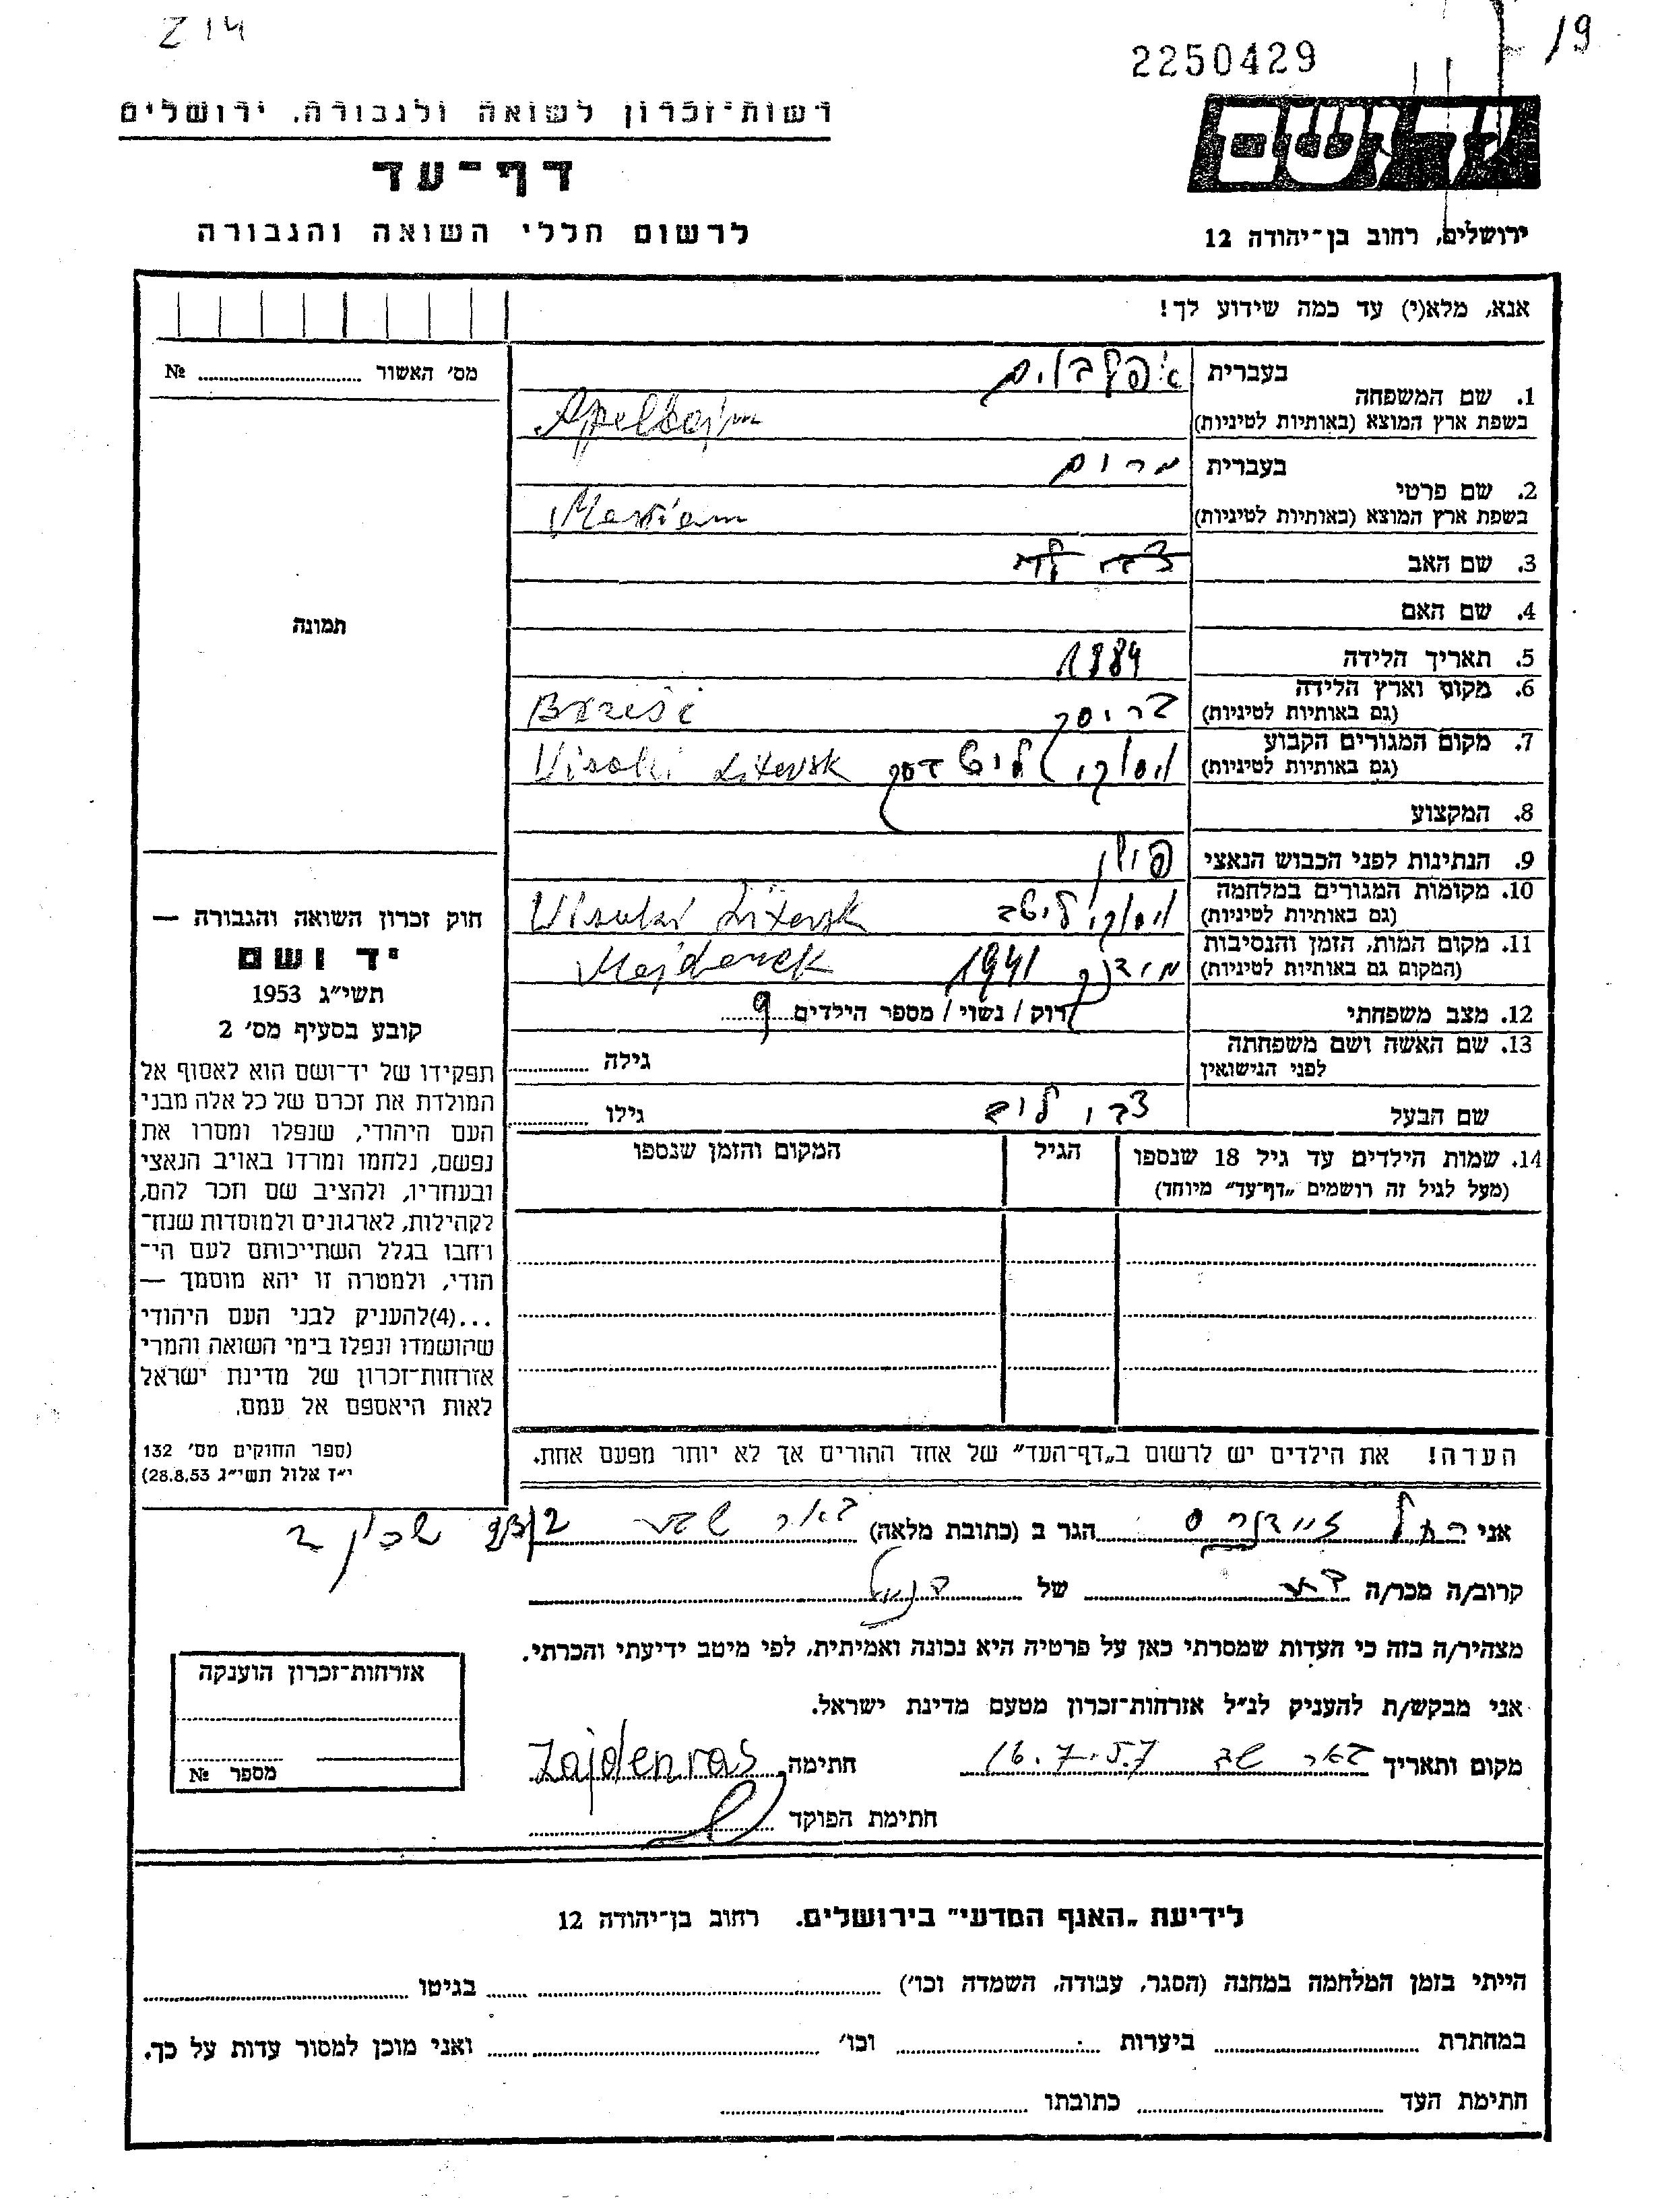 2250429
19
רשות־זכרון לשואה ולגבורה. ירושלים
יד ושם
דף־עד
לרשום חללי השואה והגבורה
ירושלים, רחוב בן־יהודה 12
אנא, מלא(י) עד כמה שידוע לך!
מס׳ האשור № ........
1. שם המשפחה
בעברית אפלבוים
בשפת ארץ המוצא (באותיות לטיניות) Apelbojm
2. שם פרטי
בעברית מרים
בשפת ארץ המוצא (באותיות לטיניות) Meriem
3. שם האב
4. שם האם
5. תאריך הלידה 1884
6. מקום וארץ הלידה
(גם באותיות לטיניות) בריסק Bżześć
7. מקום המגורים הקבוע
(גם באותיות לטיניות) ויסוקי ליטבסק Visoki Litevsk
8. המקצוע
9. הנתינות לפני הכבוש הנאצי פולין
10. מקומות המגורים במלחמה
(גם באותיות לטיניות) ויסוקי ליטב Visuki Litevsk
11. מקום המות, הזמן והנסיבות
(המקום גם באותיות לטיניות) מידנק 1941 Majdanek
12. מצב משפחתי רוק / נשוי / מספר הילדים 9
13. שם האשה ושם משפחתה
לפני הנישואין גילה ........
שם הבעל גילו ........
14. שמות הילדים עד גיל 18 שנספו
(מעל לגיל זה רושמים „דף־עד״ מיוחד)
הגיל
המקום והזמן שנספו
תמונה
חוק זכרון השואה והגבורה —
יד ושם
תשי״ג 1953
קובע בסעיף מס׳ 2
תפקידו של יד־ושם הוא לאסוף אל
המולדת את זכרם של כל אלה מבני
העם היהודי, שנפלו ומסרו את
נפשם, נלחמו ומרדו באויב הנאצי
ובעוזריו, ולהציב שם וזכר להם,
לקהילות, לארגונים ולמוסדות שנח־
רחבו בגלל השתייכותם לעם הי־
הודי, ולמטרה זו יהא מוסמך —
...(4)להעניק לבני העם היהודי
שהושמדו ונפלו בימי השואה והמרי
אזרחות־זכרון של מדינת ישראל
לאות היאספם אל עמם.
(ספר החוקים מס׳ 132
י״ז אלול תשי״ג 28.8.53)
הערה! את הילדים יש לרשום ב„דף־העד״ של אחד ההורים אך לא יותר מפעם אחת.
אני רחל זיידנרס הגר ב (כתובת מלאה) באר שבע
קרוב/ה מכר/ה של
מצהיר/ה בזה כי העדות שמסרתי כאן על פרטיה היא נכונה ואמיתית, לפי מיטב ידיעתי והכרתי.
אני מבקש/ת להעניק לנ״ל אזרחות־זכרון מטעם מדינת ישראל.
מקום ותאריך באר שב 16.7.57 חתימה Zajdenras
חתימת הפוקד
אזרחות־זכרון הוענקה
מספר №
לידיעת „האגף המדעי״ בירושלים. רחוב בן־יהודה 12
הייתי בזמן המלחמה במחנה (הסגר, עבודה, השמדה וכו׳) ........ בגיטו ........
במחתרת ........ ביערות ........ וכו׳ ........ ואני מוכן למסור עדות על כך.
חתימת העד ........ כתובתו ........